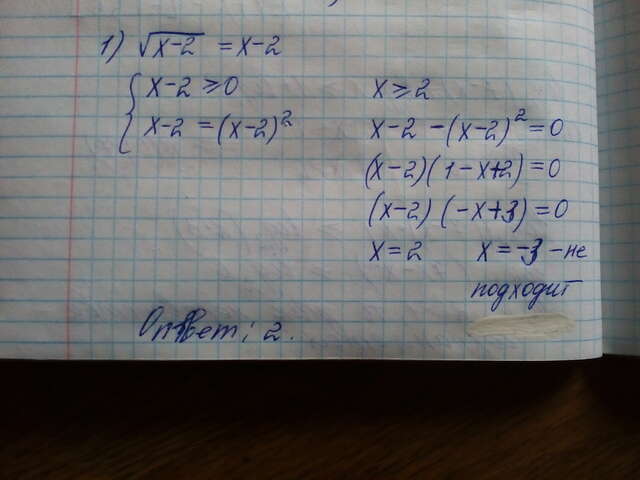 1) √x-2 = x-2
{ x-2 ≥ 0 x ≥ 2
x-2 = (x-2)² x-2 - (x-2)² = 0
(x-2)(1-x+2) = 0
(x-2)(-x+3) = 0
x = 2 x = -3 - не
подходит
Ответ: 2.